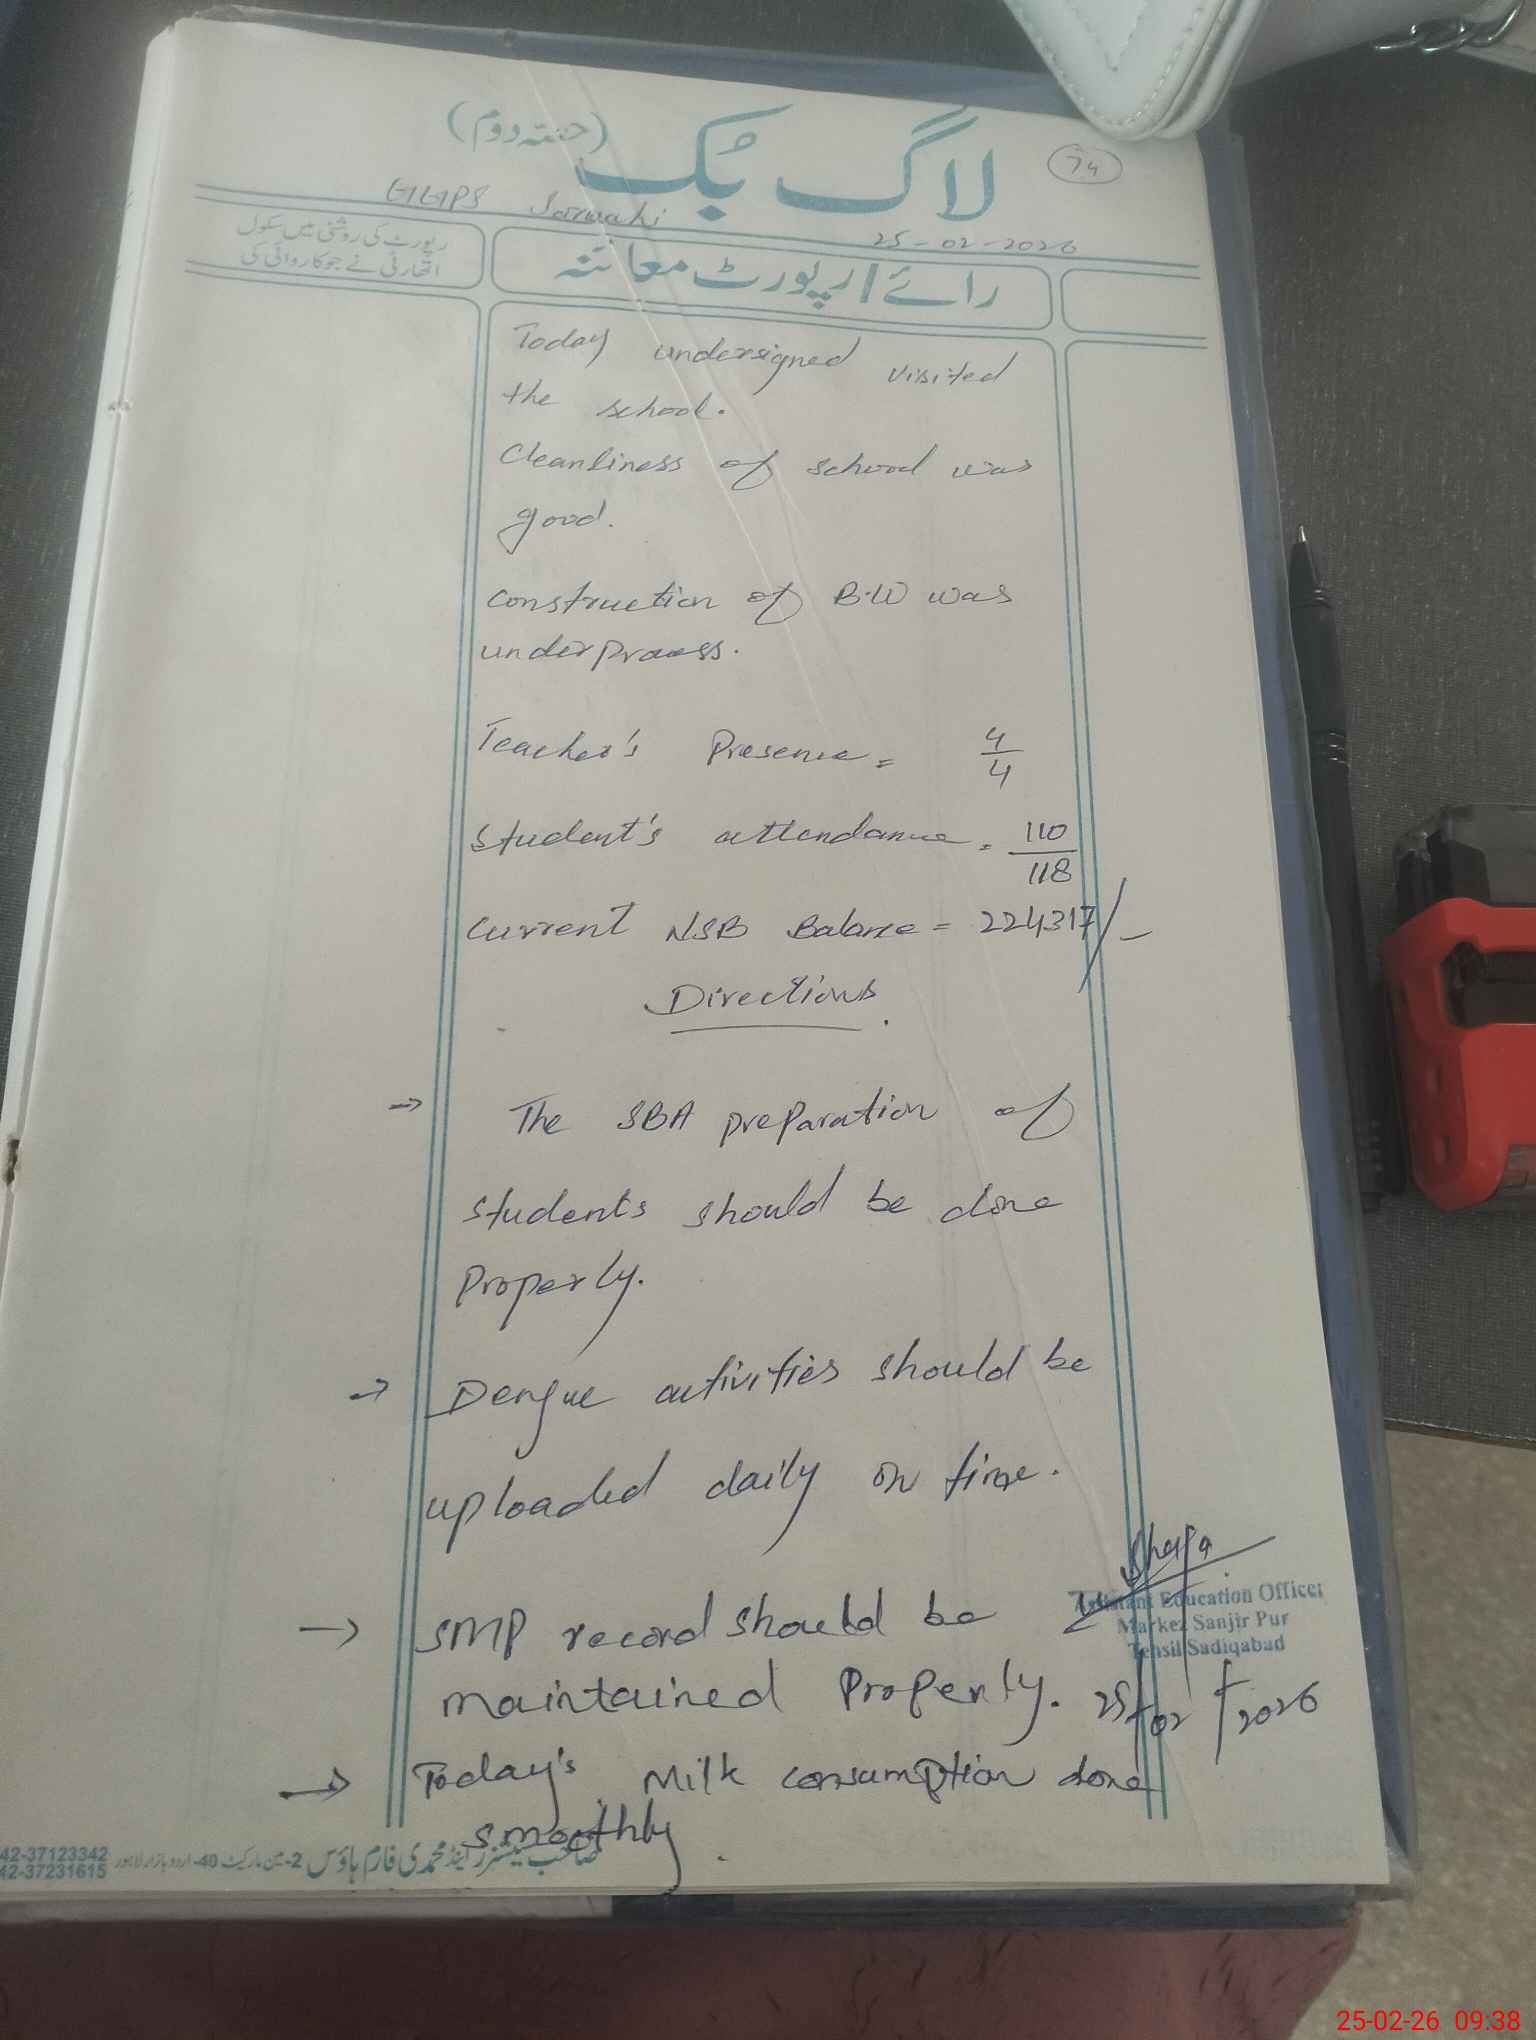 لاگ بک (حصّہ دوم)
74
GGPS Sarwahi
25-02-2026
رپورٹ کی روشنی میں سکول
اتھارٹی نے جو کاروائی کی
رائے / رپورٹ معائنہ
Today undersigned visited
the school.
Cleanliness of school was
good.
construction of B.W was
underprocess.
Teacher's Presence = 4/4
Student's attendance = 110/118
Current NSB Balance = 224317/-
Directions
→ The SBA preparation of
students should be done
Properly.
→ Dengue activities should be
uploaded daily on time.
→ SMP record should be
maintained Properly.
Assistant Education Officer
Markez Sanjir Pur
Tehsil Sadiqabad
25/02/2026
→ Today's Milk consumption done
smoothly.
42-37123342
42-37231615
2-مین مارکیٹ 40-اردو بازار لاہور
25-02-26 09:38